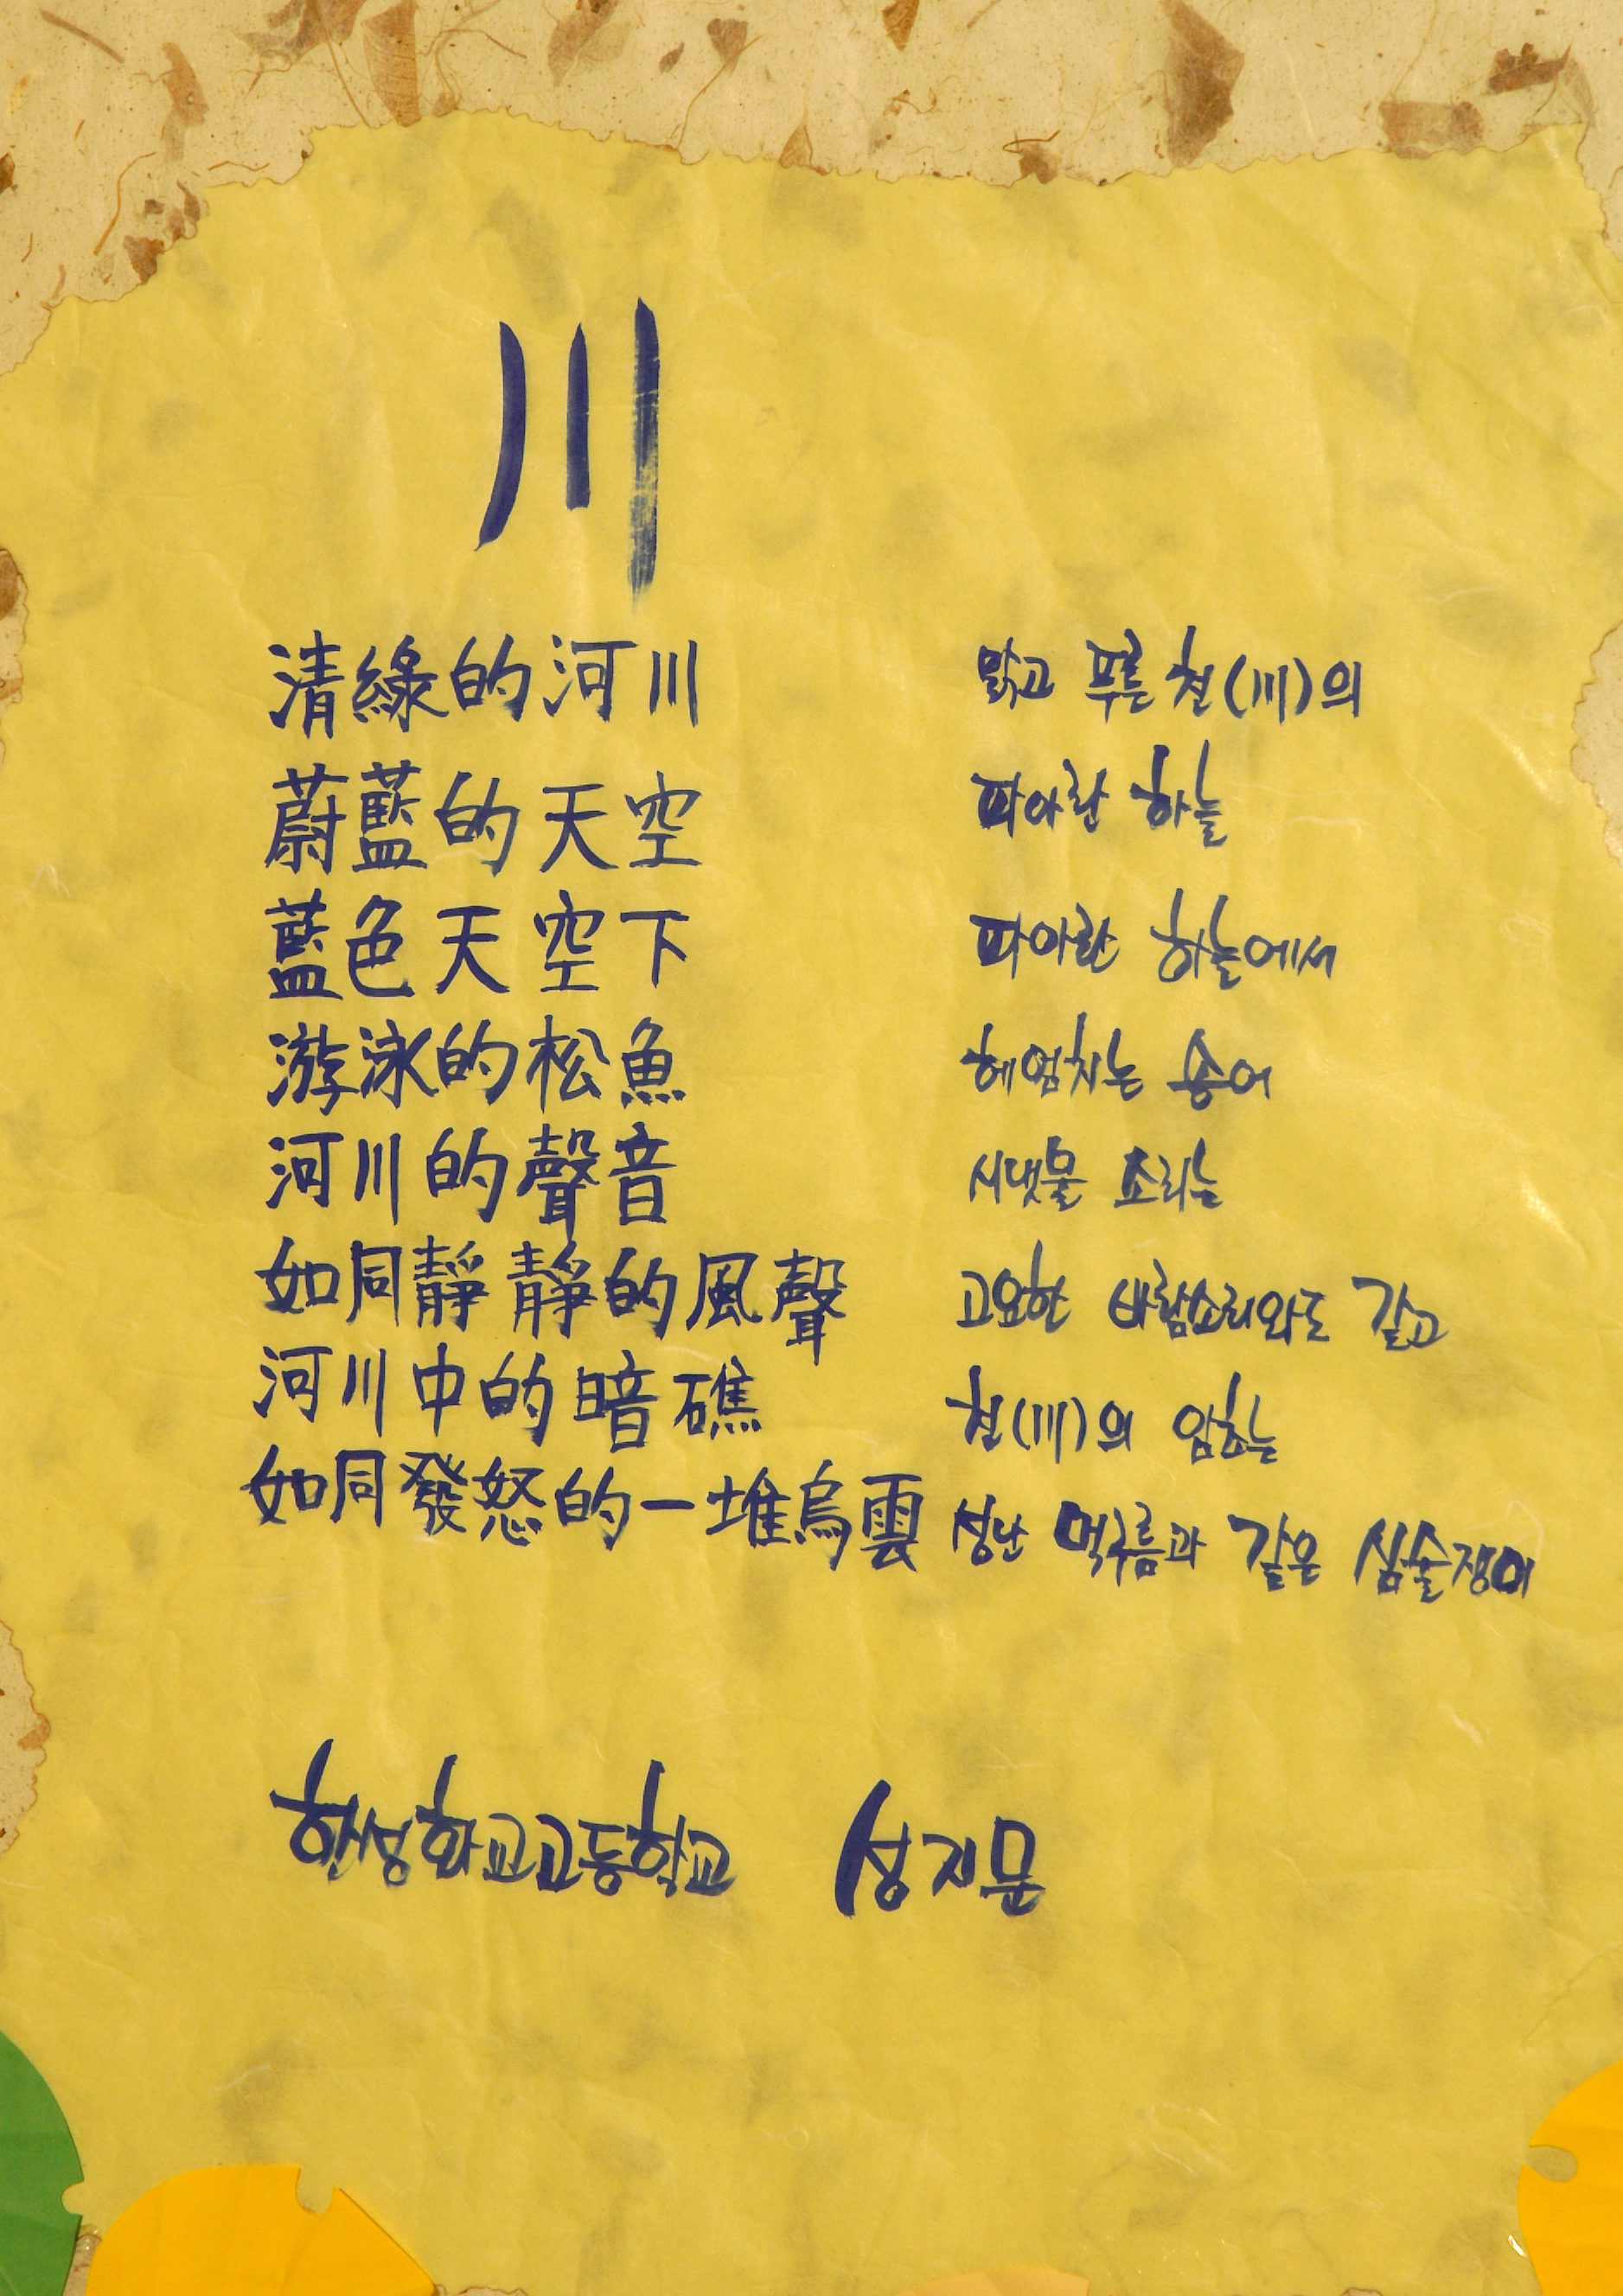 川
清綠的河川
蔚藍的天空
藍色天空下
游泳的松魚
河川的聲音
如同靜靜的風聲
河川中的暗礁
如同發怒的一堆烏雲
맑고 푸른 천(川)의
파아란 하늘
파아란 하늘에서
헤엄치는 송어
시냇물 소리는
고요한 바람소리와도 같고
천(川)의 암초는
성난 먹구름과 같은 심술쟁이
한성화교고등학교 성지문